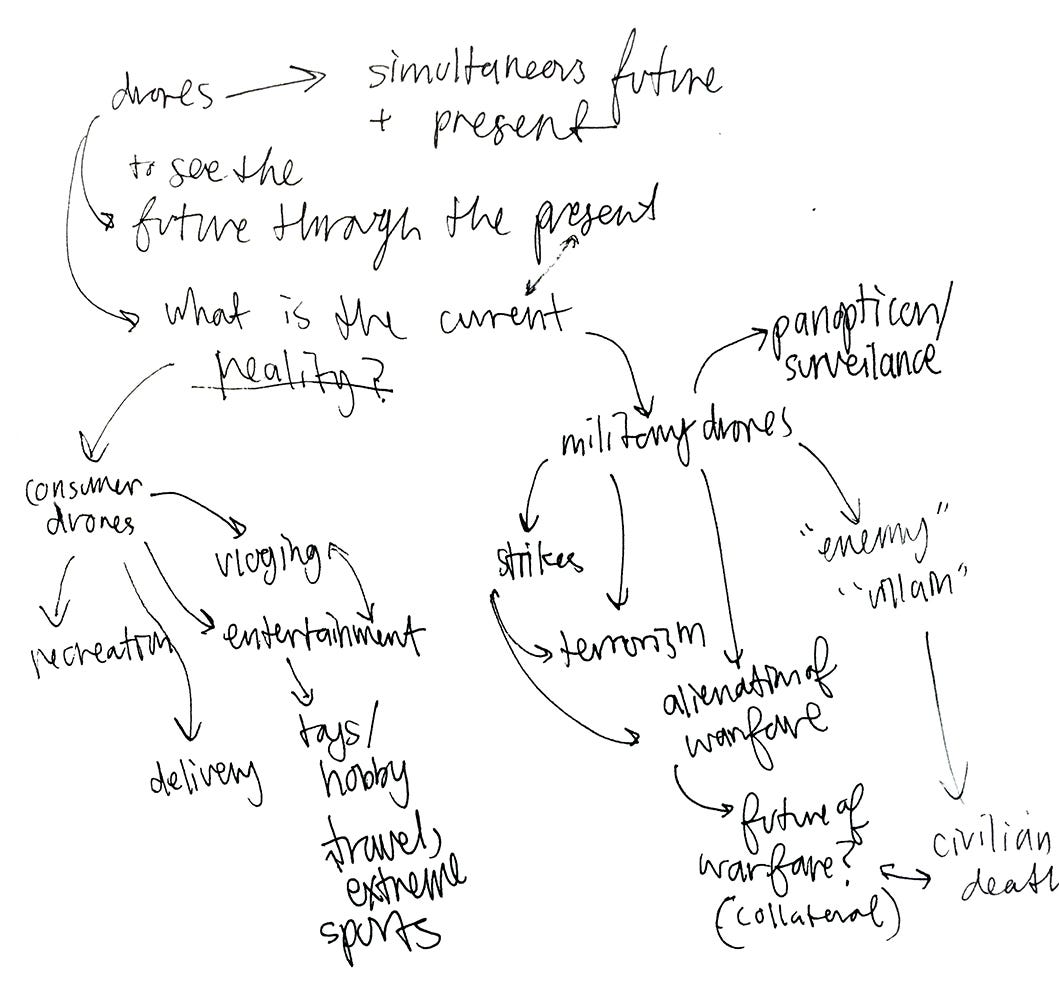 drones
simultaneous future
+ present
to see the
future through the present
what is the current
reality?
panopticon/
surveilance
military drones
consumer
drones
vloging
strikes
"enemy"
"villain"
recreation
entertainment
terrorism
alienation of
warfare
delivery
toys/
hobby
travel,
extreme
sports
future of
warfare?
(collateral)
civilian
death